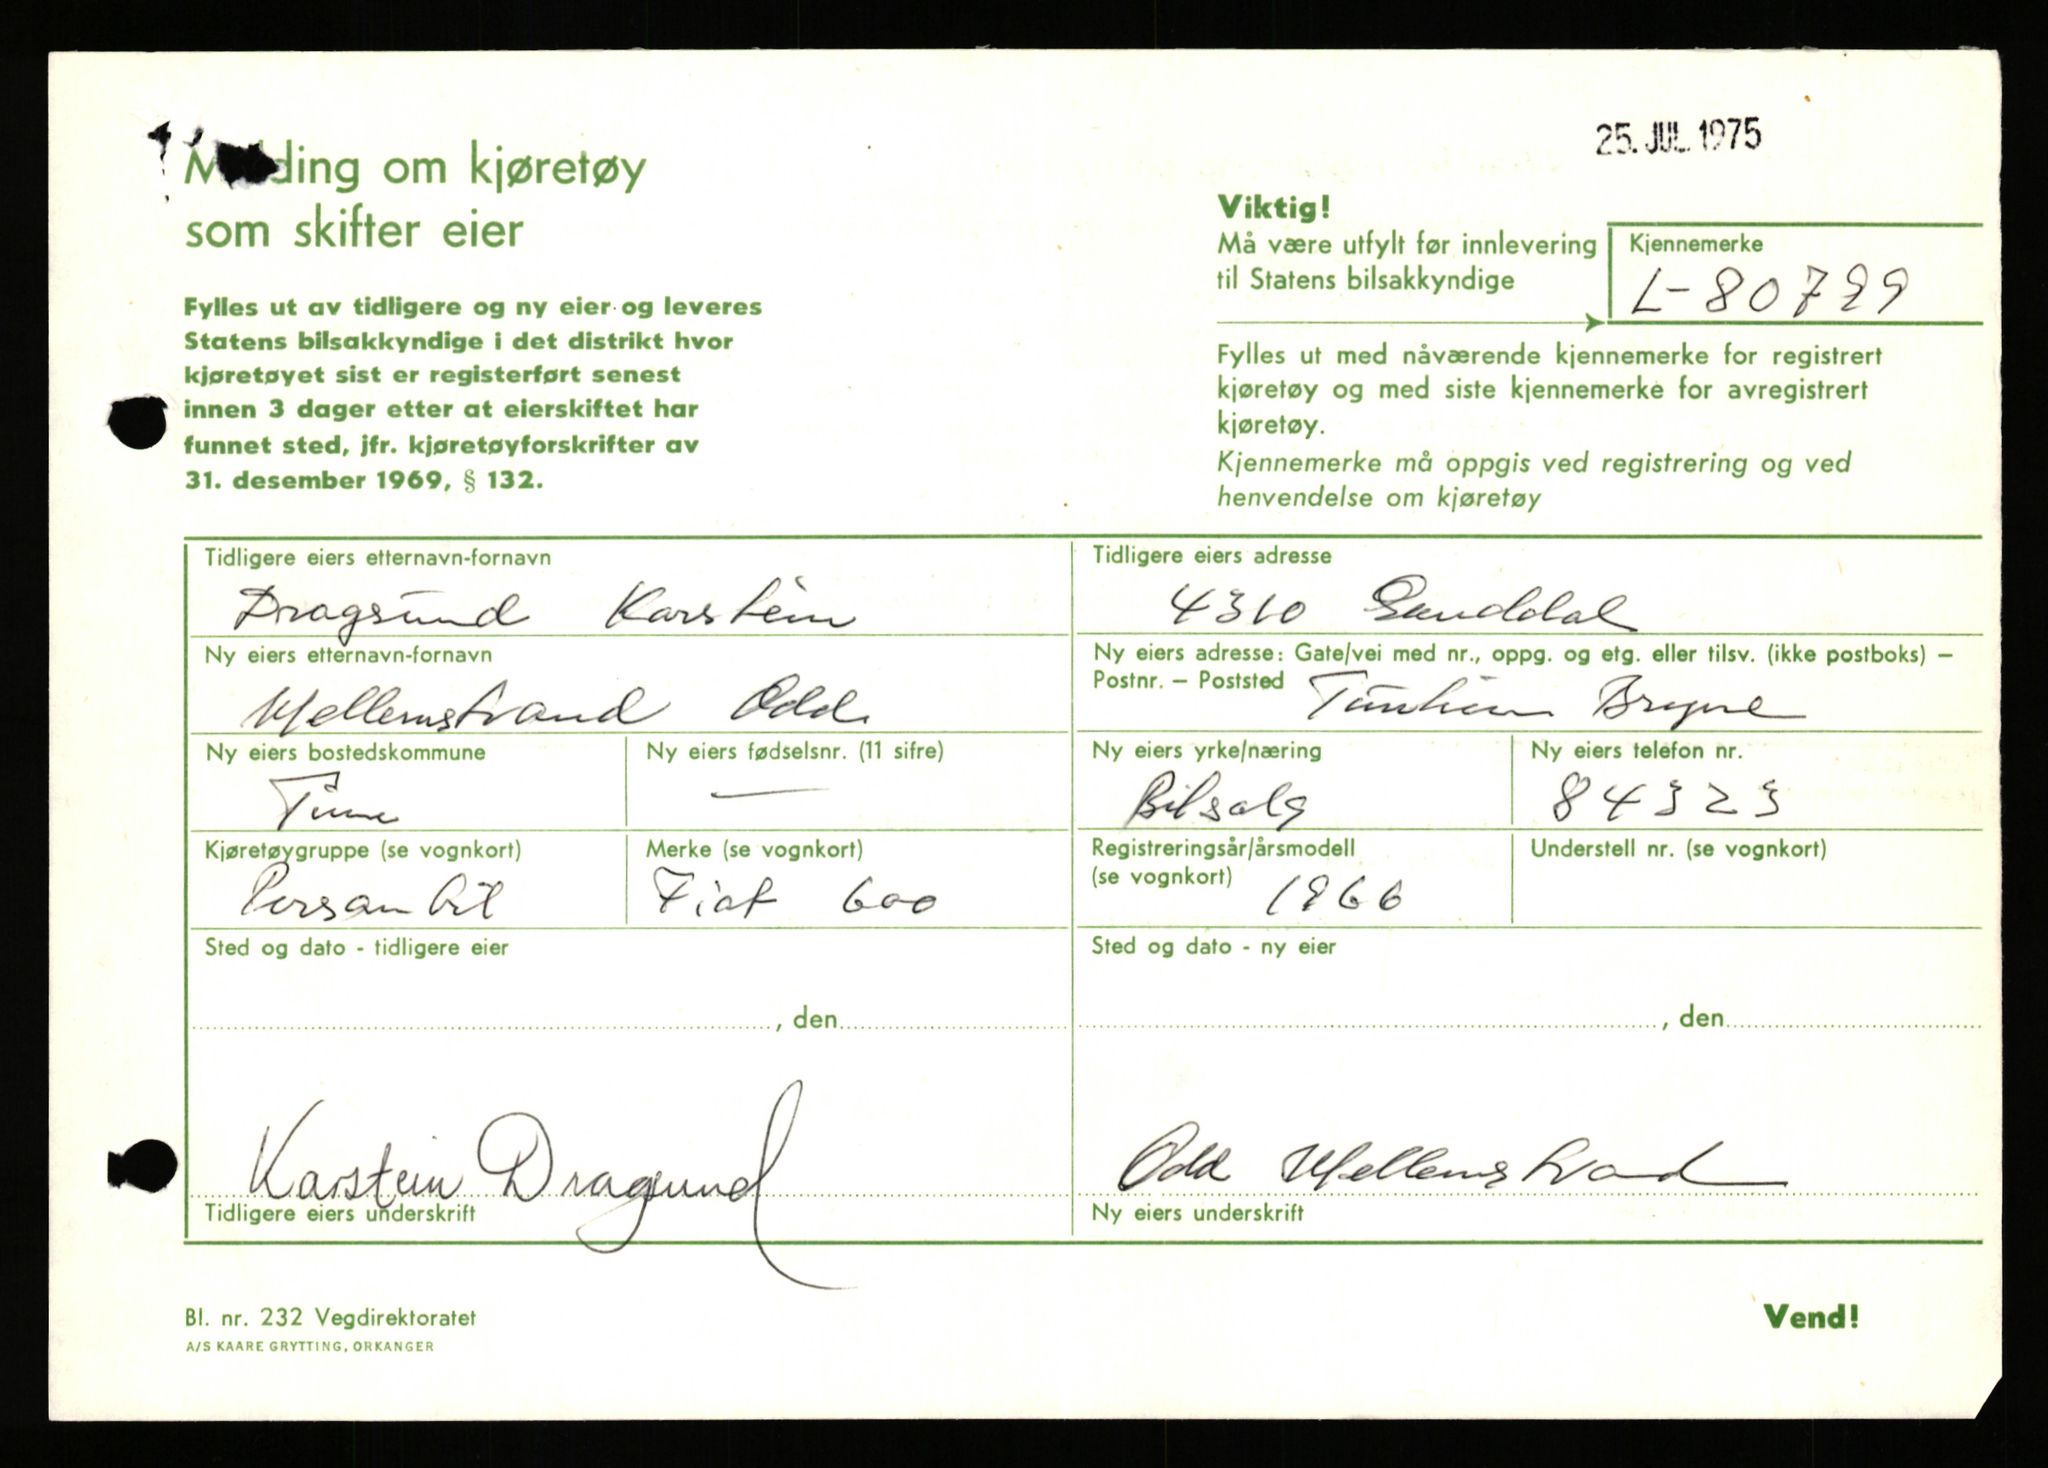 25. JUL. 1975
Melding om kjøretøy
som skifter eier
Fylles ut av tidligere og ny eier og leveres
Statens bilsakkyndige i det distrikt hvor
kjøretøyet sist er registerført senest
innen 3 dager etter at eierskiftet har
funnet sted, jfr. kjøretøyforskrifter av
31. desember 1969, § 132.
Viktig!
Må være utfylt før innlevering
til Statens bilsakkyndige
Kjennemerke
L-80799
Fylles ut med nåværende kjennemerke for registrert
kjøretøy og med siste kjennemerke for avregistrert
kjøretøy.
Kjennemerke må oppgis ved registrering og ved
henvendelse om kjøretøy
Tidligere eiers etternavn-fornavn
Dragsund Karstein
Tidligere eiers adresse
4310
Ny eiers etternavn-fornavn
Mellemstrand Odd.
Ny eiers adresse: Gate/vei med nr., oppg. og etg. eller tilsv. (ikke postboks) –
Postnr. – Poststed Tunheim Bryne
Ny eiers bostedskommune
Time
Ny eiers fødselsnr. (11 sifre)
—
Ny eiers yrke/næring
Bilsalg
Ny eiers telefon nr.
84323
Kjøretøygruppe (se vognkort)
Personbil
Merke (se vognkort)
Fiat 600
Registreringsår/årsmodell
(se vognkort) 1966
Understell nr. (se vognkort)
Sted og dato - tidligere eier
, den
Sted og dato - ny eier
, den
Karstein Dragsund
Tidligere eiers underskrift
Odd Mellemstrand
Ny eiers underskrift
Bl. nr. 232 Vegdirektoratet
A/S KAARE GRYTTING, ORKANGER
Vend!